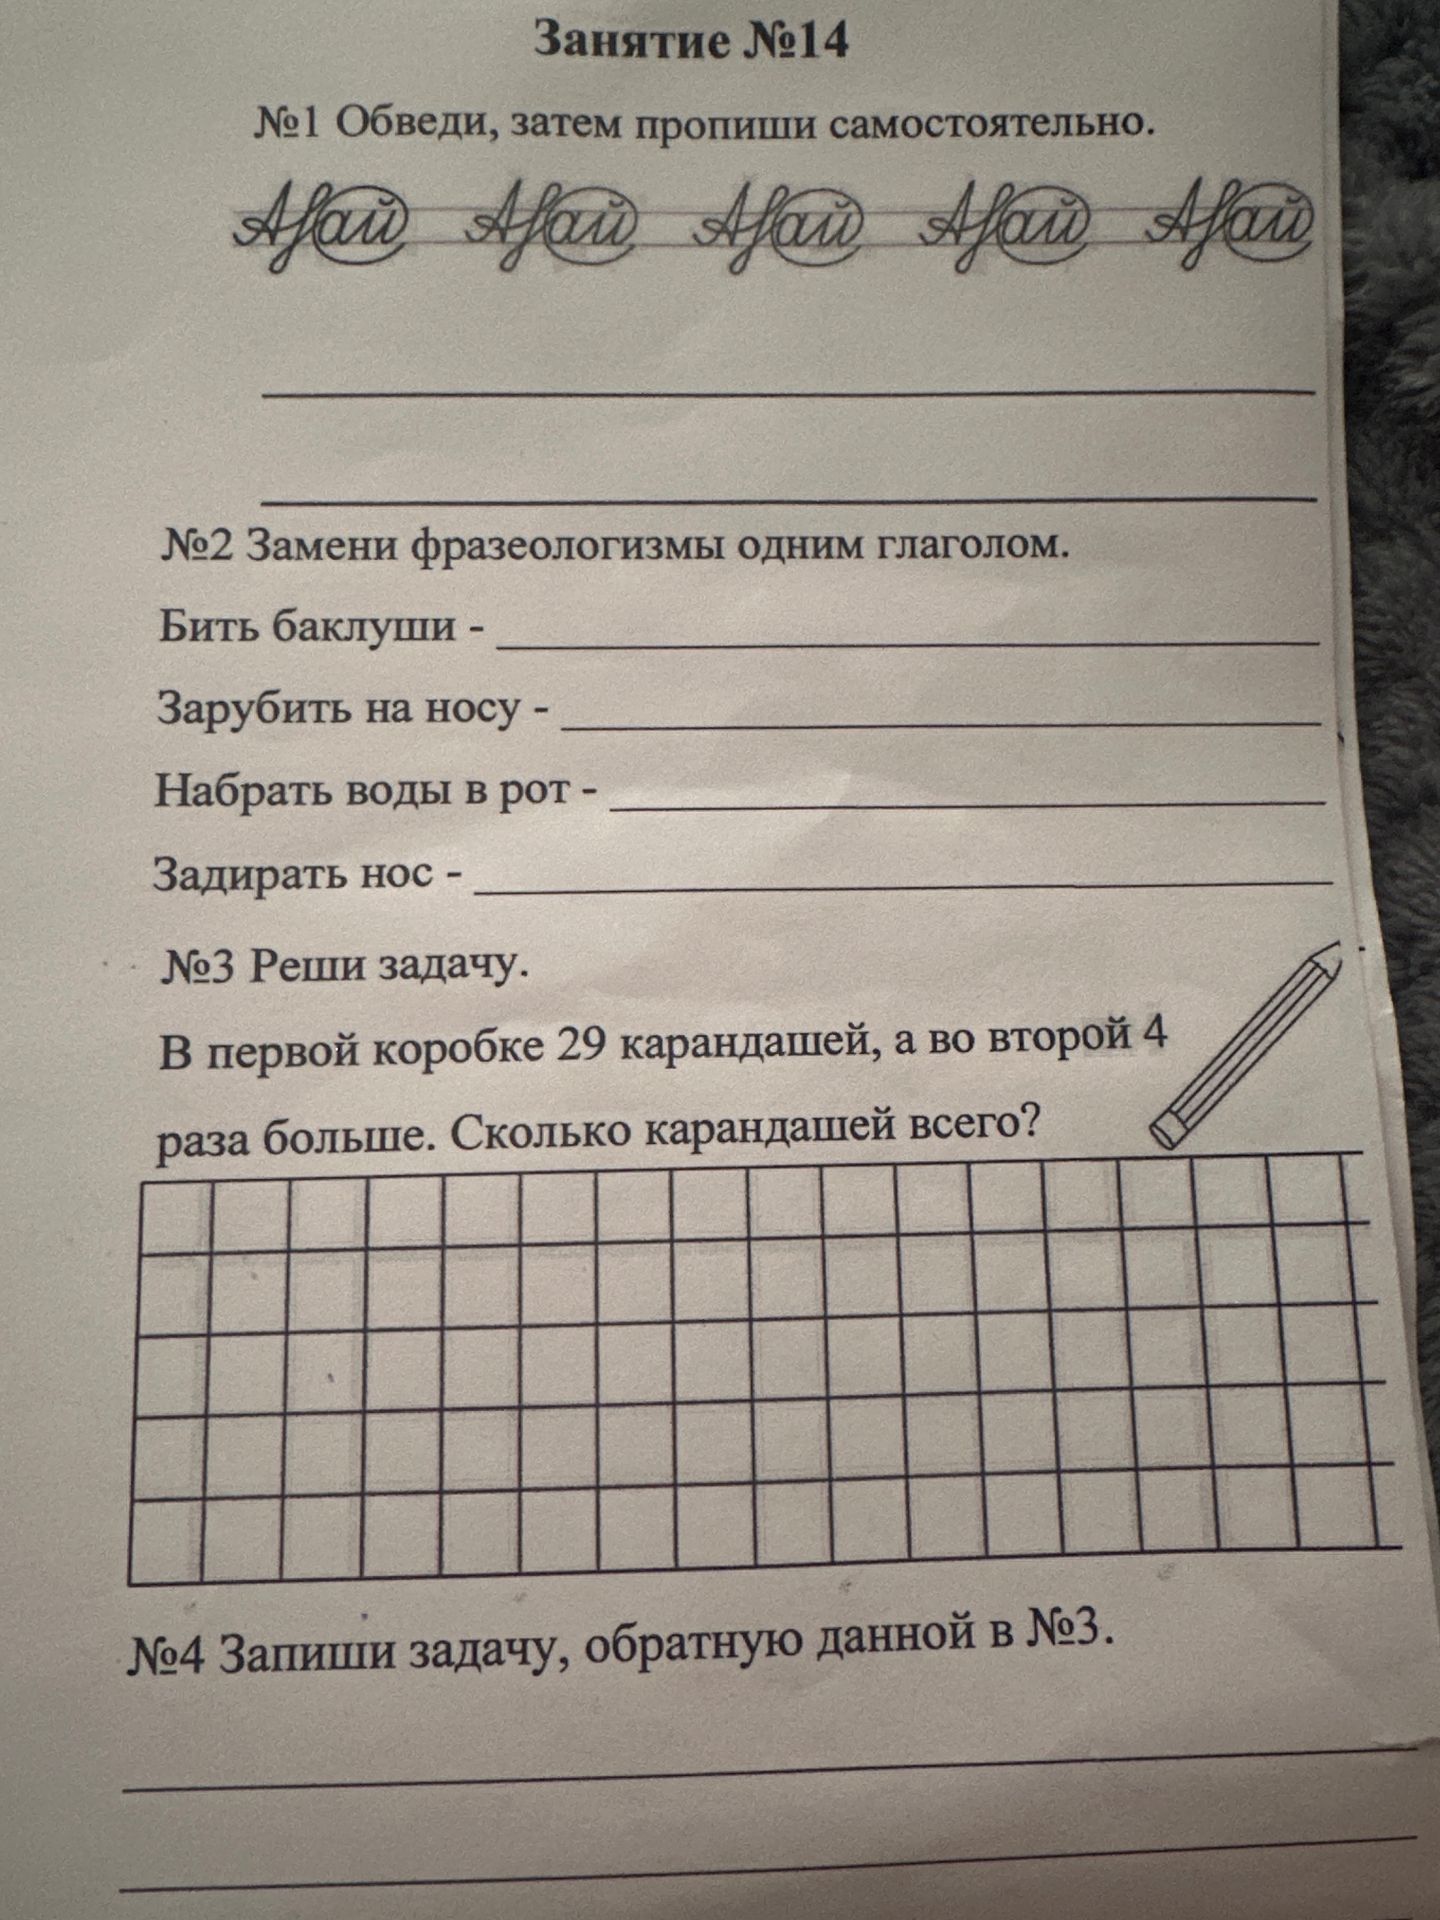 Занятие №14
№1 Обведи, затем пропиши самостоятельно.
№2 Замени фразеологизмы одним глаголом.
Бить баклуши -
Зарубить на носу -
Набрать воды в рот -
Задирать нос -
№3 Реши задачу.
В первой коробке 29 карандашей, а во второй 4
раза больше. Сколько карандашей всего?
№4 Запиши задачу, обратную данной в №3.